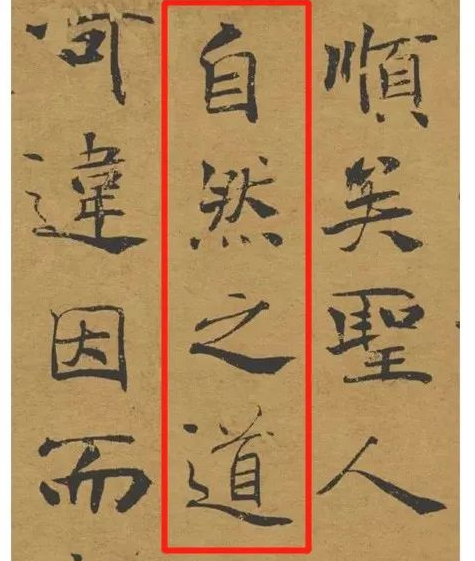 順矣聖人
自然之道
違因而